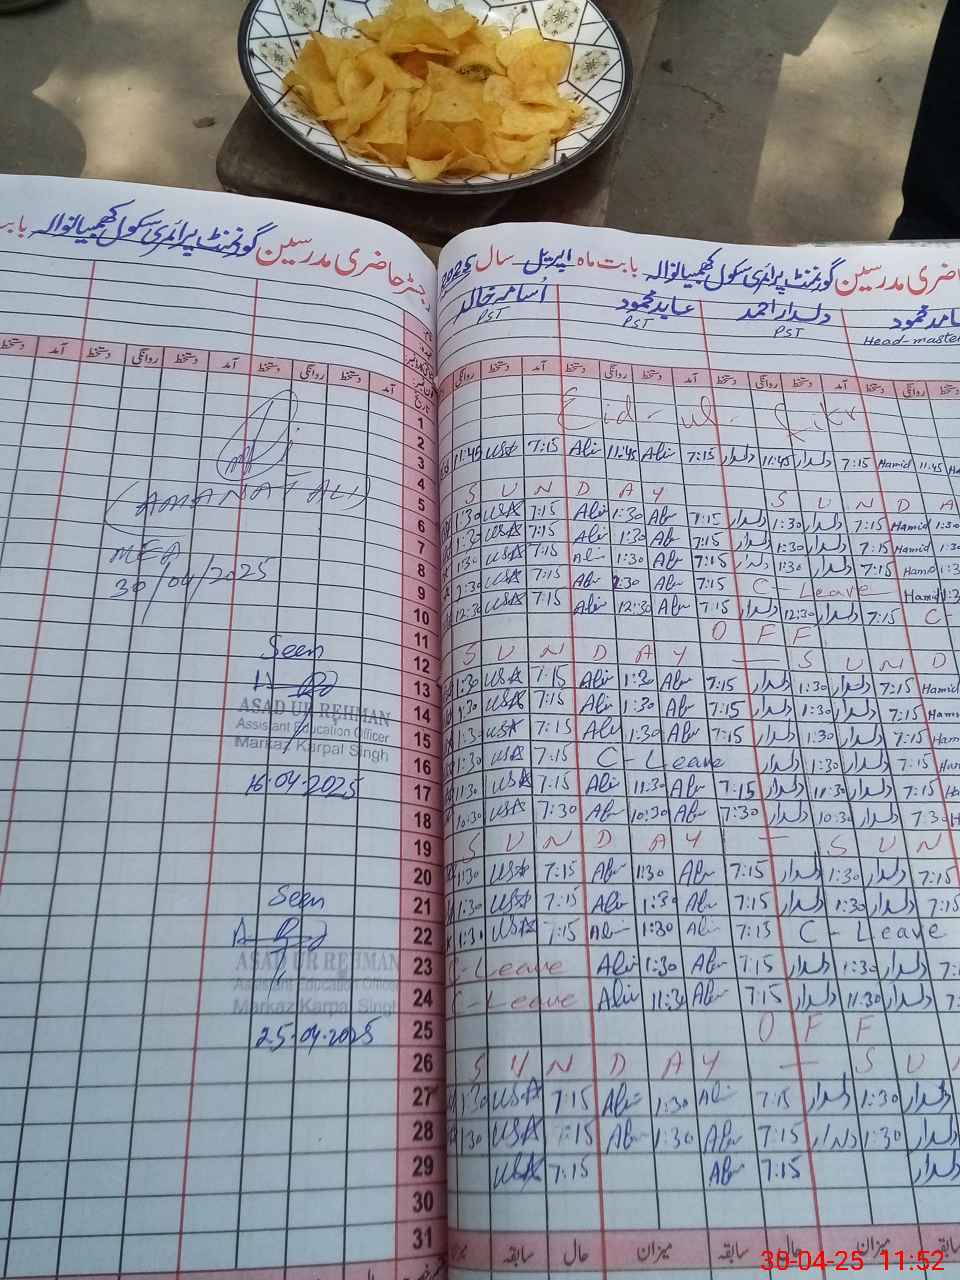 رجسٹر حاضری مدرسین گورنمنٹ پرائمری سکول کھمبیانوالہ بابت
آمد دستخط روانگی دستخط آمد دستخط روانگی دستخط آمد
(AMANAT ALI)
MEA
30/04/2025
Seen
ASAD UR REHMAN
Assistant Education Officer
Markaz Karpal Singh
16.04.2025
Seen
ASAD UR REHMAN
Assistant Education Officer
Markaz Karpal Singh
25.04.2025
حاضری مدرسین گورنمنٹ پرائمری سکول کھمبیانوالہ بابت ماہ اپریل سال 2025
اسامہ خالد عابد محمود دلدار احمد حامد محمود
PST PST PST Head-master
روانگی دستخط آمد دستخط روانگی دستخط آمد دستخط روانگی دستخط آمد دستخط روانگی دستخط
تاریخ
1 Eid-ul-Fitr
2
3 11:45 USA 7:15 Abi 11:45 Abi 7:15 دلدار 11:45 دلدار 7:15 Hamid 11:45
4
5 S U N D A Y S U N D A
6 1:30 USA 7:15 Abi 1:30 Abi 7:15 دلدار 1:30 دلدار 7:15 Hamid 1:30
7 1:30 USA 7:15 Abi 1:30 Abi 7:15 دلدار 1:30 دلدار 7:15 Hamid 1:30
8 1:30 USA 7:15 Abi 1:30 Abi 7:15 دلدار 1:30 دلدار 7:15 Hamid
9 1:30 USA 7:15 Abi 1:30 Abi 7:15 C-Leave Hamid
10 12:30 USA 7:15 Abi 12:30 Abi 7:15 دلدار 12:30 دلدار 7:15 C-
11 O F F
12 S U N D A Y — S U N D
13 1:30 USA 7:15 Abi 1:30 Abi 7:15 دلدار 1:30 دلدار 7:15 Hamid
14 1:30 USA 7:15 Abi 1:30 Abi 7:15 دلدار 1:30 دلدار 7:15 Hami
15 1:30 USA 7:15 Abi 1:30 Abi 7:15 دلدار 1:30 دلدار 7:15 Ham
16 1:30 USA 7:15 C-Leave دلدار 1:30 دلدار 7:15 Ham
17 11:30 USA 7:15 Abi 11:30 Abi 7:15 دلدار 11:30 دلدار 7:15
18 10:30 USA 7:30 Abi 10:30 Abi 7:30 دلدار 10:30 دلدار 7:30
19 S U N D A Y — S U N
20 1:30 USA 7:15 Abi 1:30 Abi 7:15 دلدار 1:30 دلدار 7:15
21 1:30 USA 7:15 Abi 1:30 Abi 7:15 دلدار 1:30 دلدار 7:15
22 1:30 USA 7:15 Abi 1:30 Abi 7:15 C-Leave
23 C-Leave Abi 1:30 Abi 7:15 دلدار 1:30 دلدار
24 C-Leave Abi 11:30 Abi 7:15 دلدار 11:30 دلدار
25 O F F
26 S U N D A Y — S U
27 1:30 USA 7:15 Abi 1:30 Abi 7:15 دلدار 1:30 دلدار
28 1:30 USA 7:15 Abi 1:30 Abi 7:15 دلدار 1:30 دلدار
29 USA 7:15 Abi 7:15 دلدار
30
31
سابقہ حال میزان سابقہ حال میزان سابقہ
30-04-25 11:52